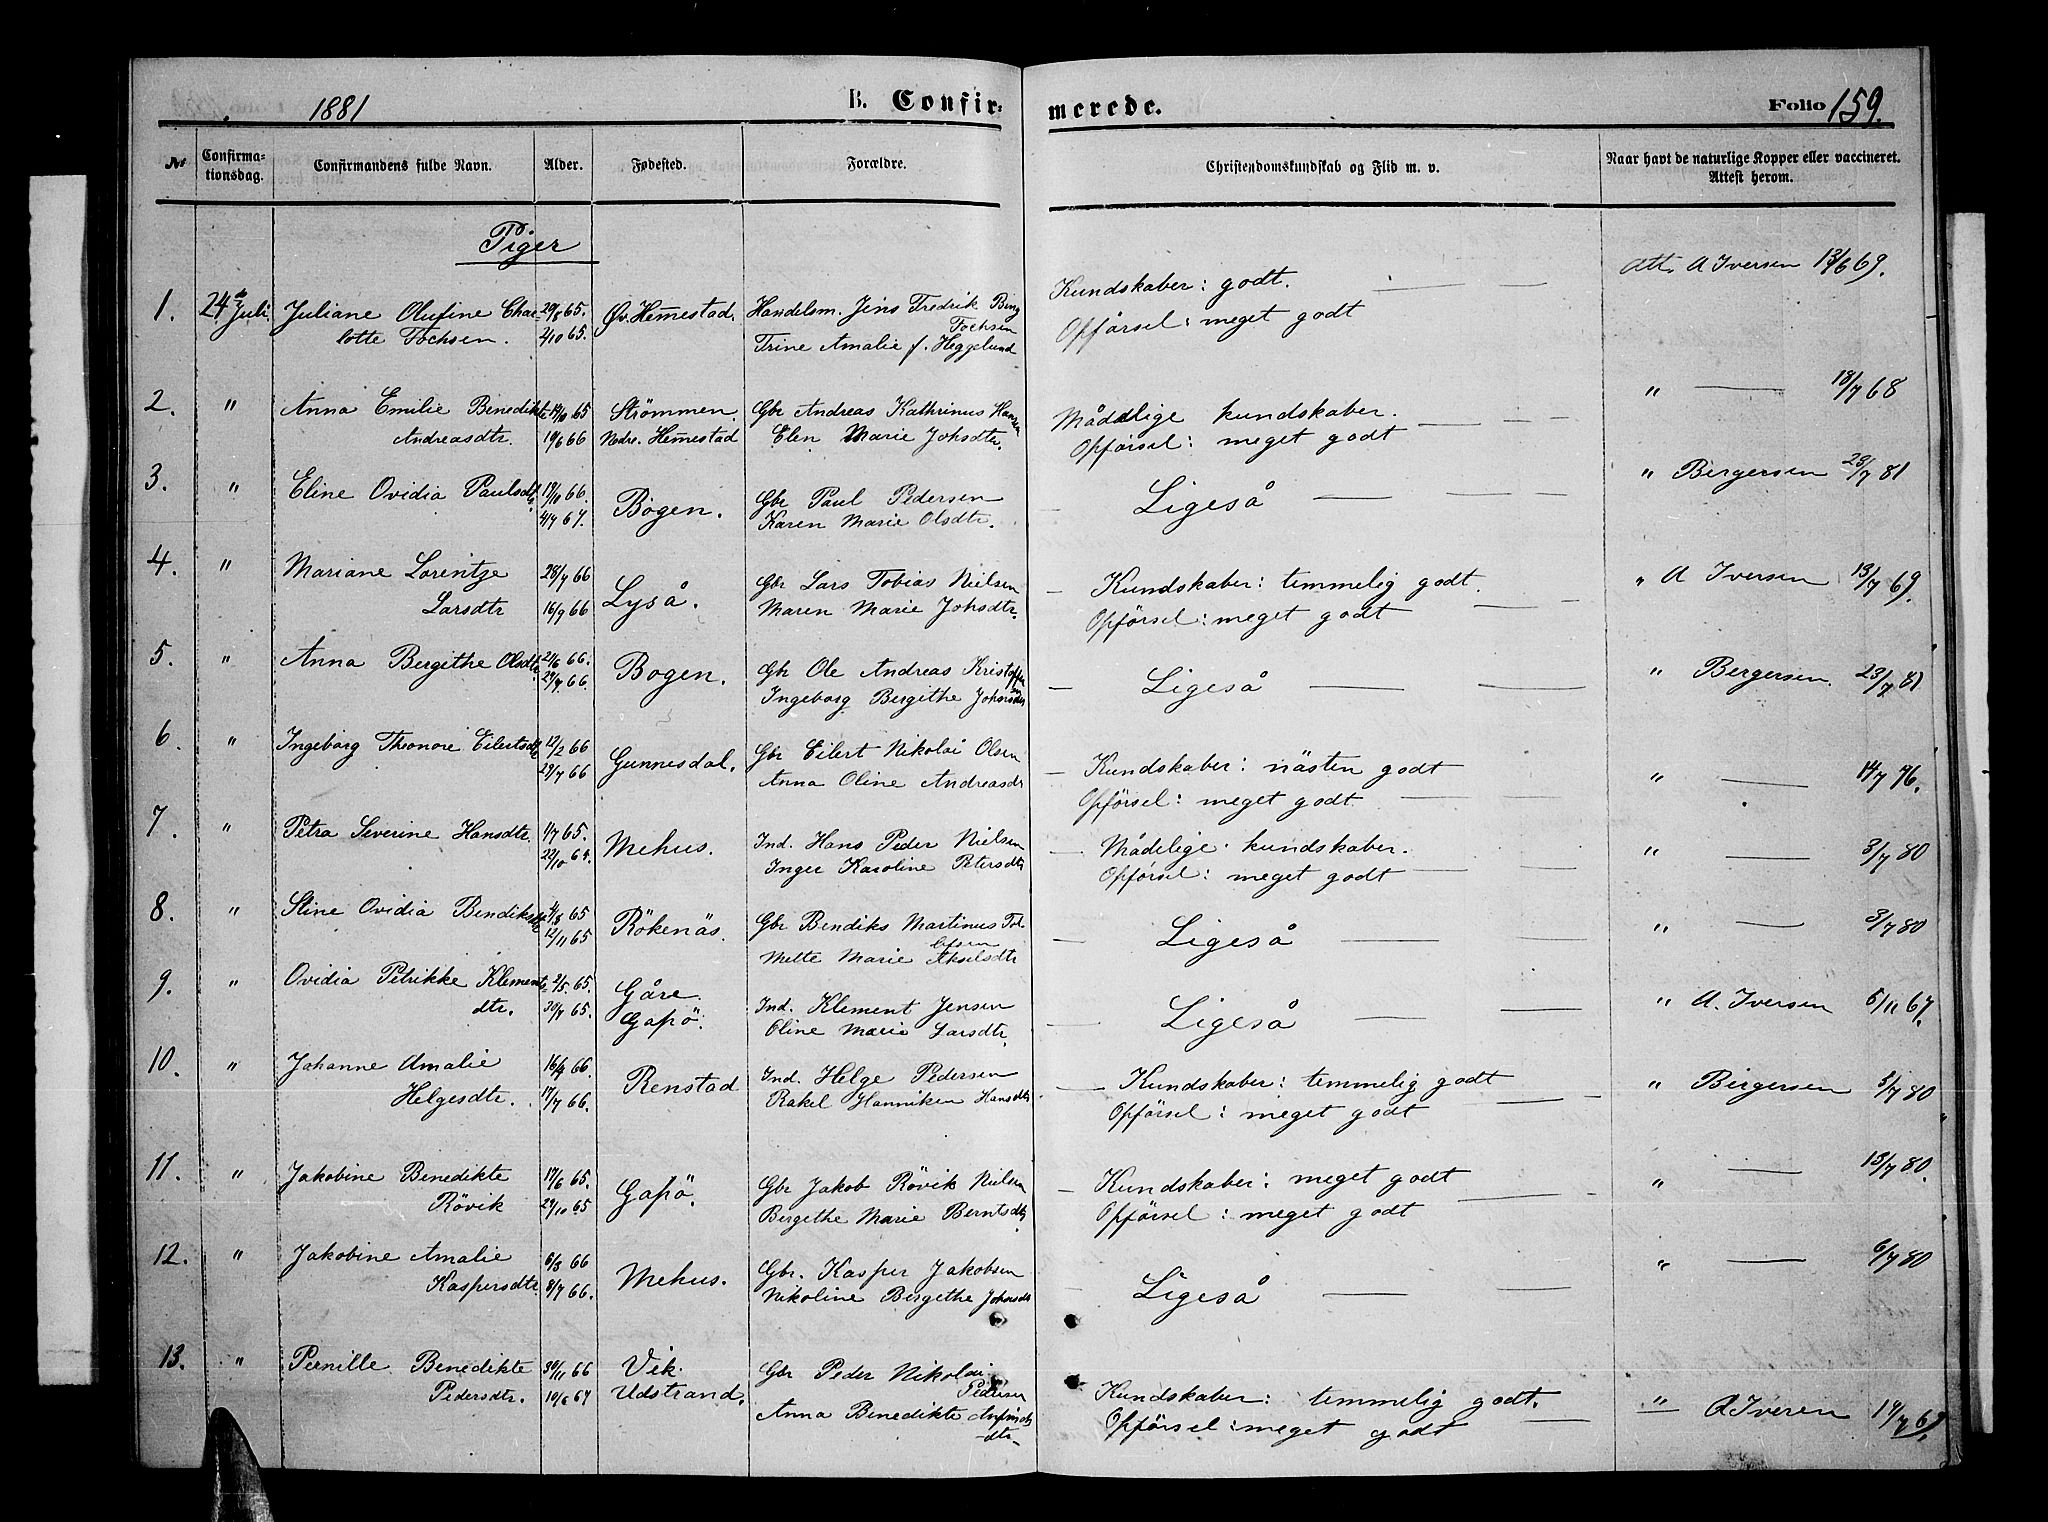 1881
B. Confir-
merede.
Folio 159.
№
Confirma-
tionsdag.
Confirmandens fulde Navn.
Alder.
Fødested.
Forældre.
Christendomskundskab og Flid m. v.
Naar havt de naturlige Kopper eller vaccineret.
Attest herom.
Piger
1. 24de Juli. Juliane Olufine Char 29/8 65. Øv. Hemestad. Handelsm. Jens Fredrik Bing Kundskaber: godt. Att. A Iversen 13/6 69.
lotte Fochsen. 2/10 65. Fochsen Opførsel: meget godt
Trine Amalie f. Heggelund
2. " Anna Emilie Benedikte 65 Strömmen. Gbr Andreas Kathrinus Hansen Mådelige kundskaber. " — 18/7 68
Andreasdtr. 19/6 66 Nedre. Hemestad Elen Marie Johsdtr. Opførsel: meget godt
3. " Eline Ovidia Paulsdtr 19/10 66. Bogen. Gbr Paul Pedersen Ligeså " Bergersen 23/7 81
4/7 67. Karen Marie Olsdtr.
4. " Mariane Lorentze 28/7 66 Lyså. Gbr Lars Tobias Nielsen Kundskaber: temmelig godt. " A Iversen 13/7 69.
Larsdtr 16/9 66 Maren Marie Johsdtr. Opförsel: meget godt
5. " Anna Bergithe Olsdtr 21/6 66. Bogen. Gbr Ole Andreas Kristoffersen Ligeså " Bergersen. 23/7 81
29/7 66. Ingeborg Bergithe Johnsdtr
6. " Ingeborg Theonore Eilertsdtr 12/2 66 Gunnesdal. Gbr Eilert Nikolai Olsen Kundskaber: nästen godt " — 14/7 76.
29/7 66 Anna Oline Andreasdtr Opförsel: meget godt.
7. " Petra Severine Hansdtr. 1/7 65. Mehus. Ind. Hans Peder Nielsen Mådelige kundskaber. " — 3/7 80
22/10 65. Inger Karoline Petersdtr Opförsel: meget godt
8. " Stine Ovidia Bendiksdtr 4/8 65 Rökenäs. Gbr Bendiks Martinus Tol Ligeså " — 3/7 80
12/11 65 lefsen
Mette Marie Akselsdtr
9. " Ovidia Petrikke Klements 2/5 65. Gåre. Ind. Klement Jensen Ligeså " A. Iversen 6/11 67.
dtr. 30/7 65. Gapö. Oline Marie Larsdtr.
10. " Johanne Amalie 16/4 66. Renstad Ind. Helge Pedersen Kundskaber: temmelig godt " Bergersen 5/7 80
Helgesdtr. 17/7 66. Rakel Hanniken Hansdtr Opförsel: meget godt
11. " Jakobine Benedikte 17/6 65. Gapö. Gbr Jakob Rövik Nielsen Kundskaber: meget godt " — 13/7 80.
Rövik 29/10 65 Bergethe Marie Berntsdtr Opförsel: meget godt
12. " Jakobine Amalie 6/3 66 Mehus. Gbr. Kasper Jakobsen Ligeså " — 6/7 80
Kaspersdtr 8/7 66. Nikoline Bergethe Johnsdtr
13. " Pernille Benedikte 30/11 66 Vik. Gbr Peder Nikolai Kundskaber: temmelig godt. " A Iveren 19/7 69.
Pedersdtr. 10/6 67 Udstrand. Pedersen Opförsel: meget godt
Anna Benedikte Anfinds
dtr.